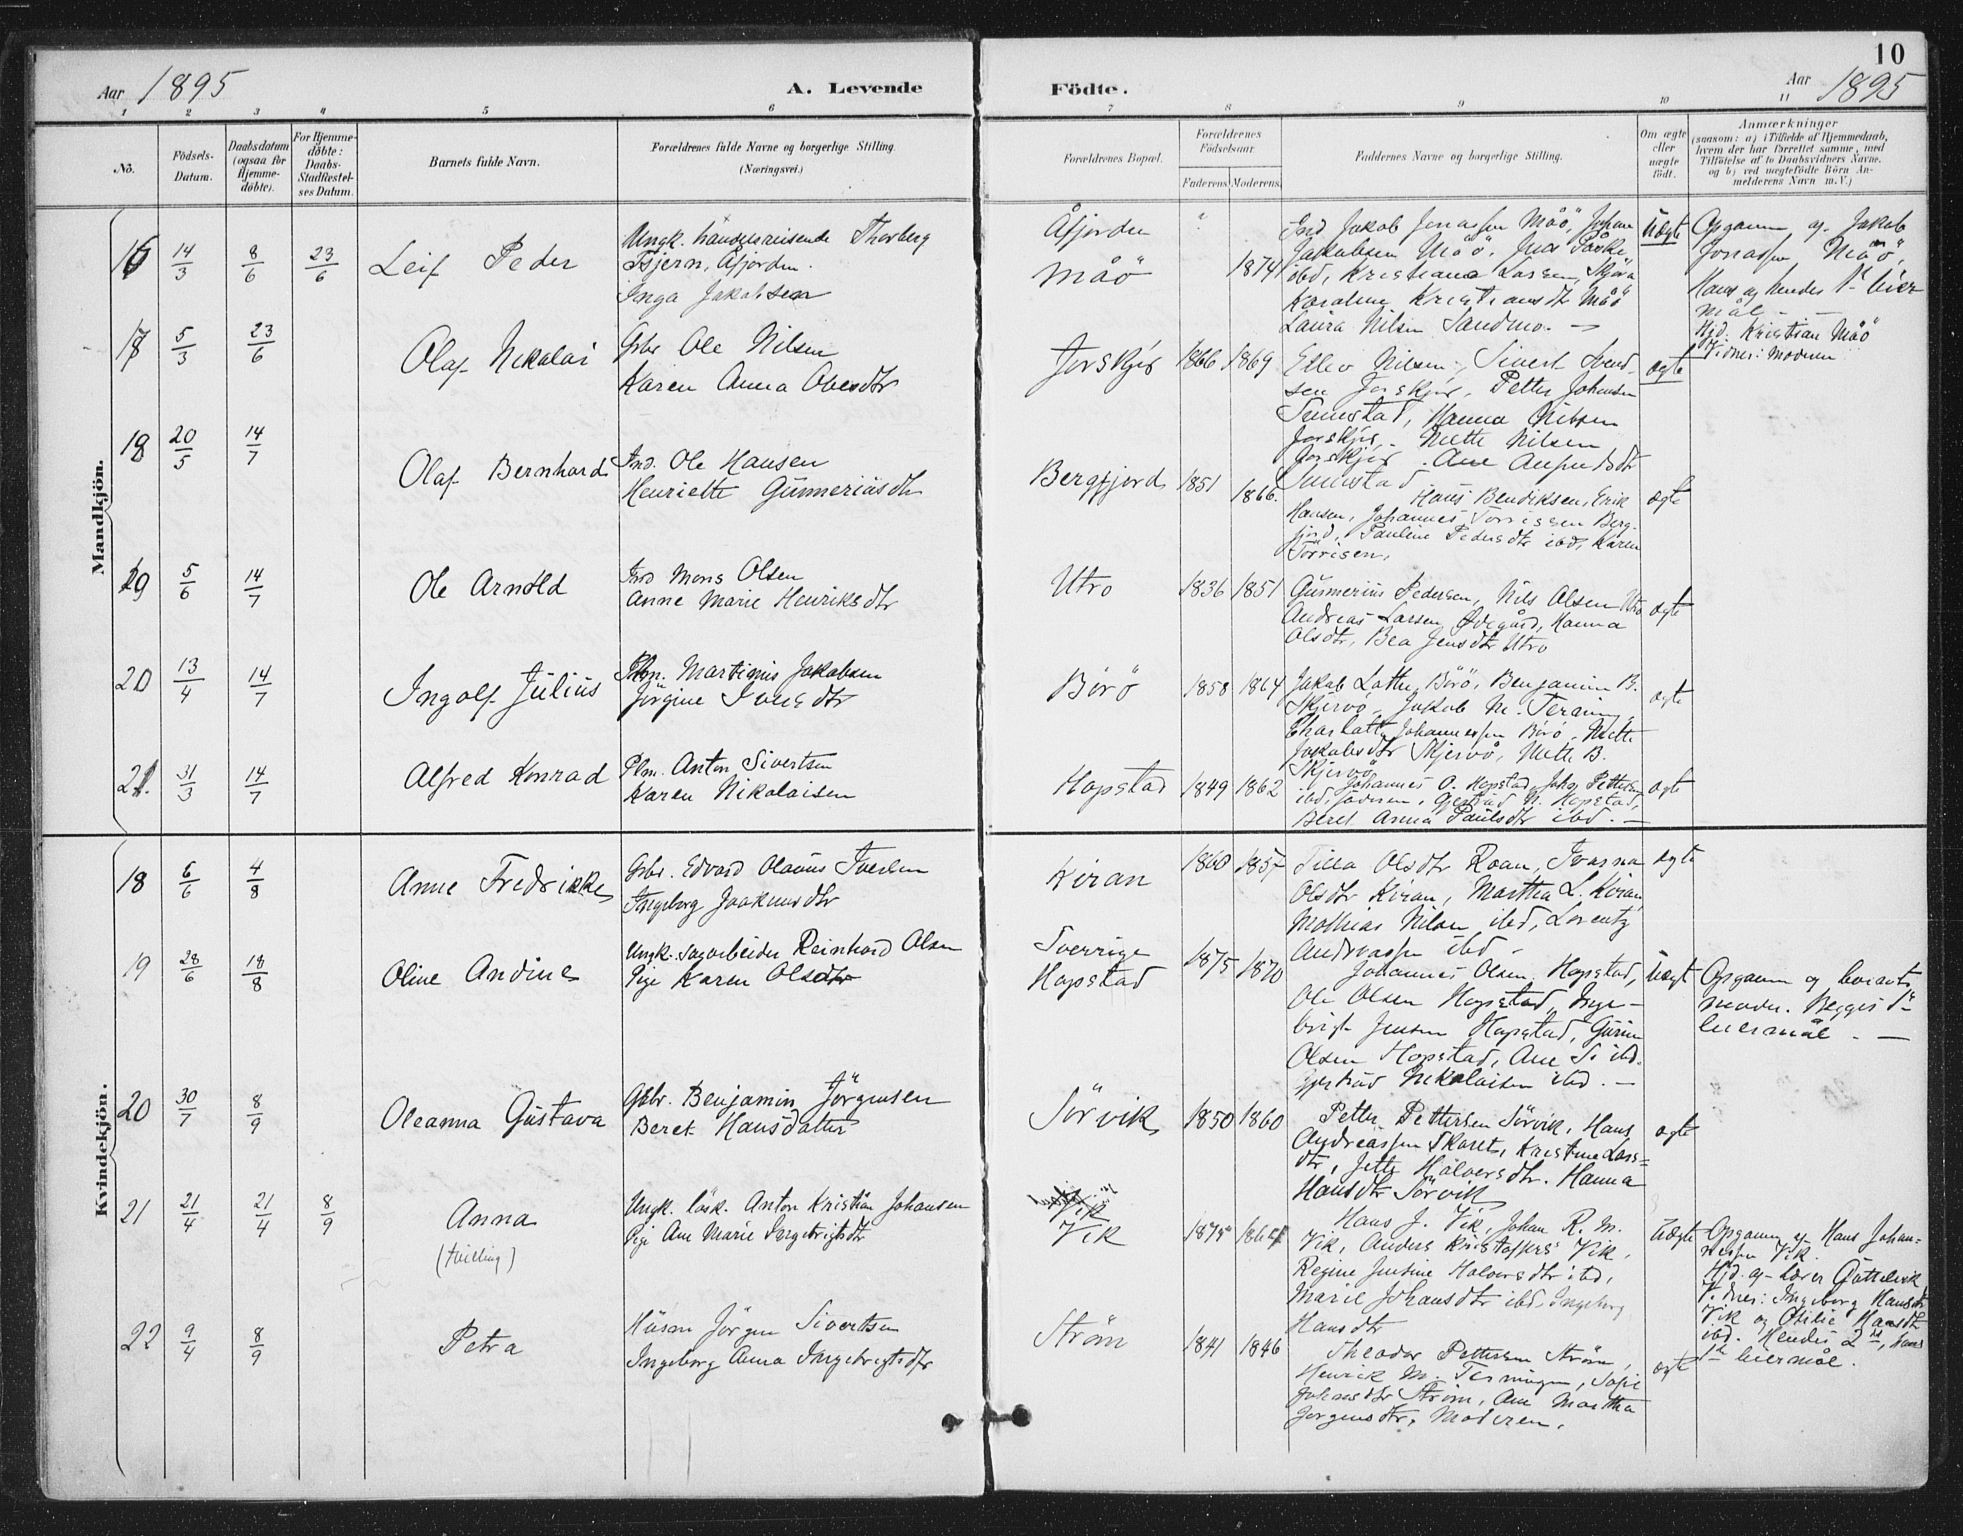 10
Aar 1895
A. Levende
Födte.
Aar 1895
1 2 3 4 5 6 7 8 9 10 11
No.
Födsels-Datum.
Daabsdatum (ogsaa for Hjemme-döbte).
For Hjemme-döbte: Daabs-Stadfestel-ses Datum.
Barnets fulde Navn.
Forældrenes fulde Navne og borgerlige Stilling (Næringsvei.)
Forældrenes Bopæl.
Forældrenes Födselsaar.
Faderens. Moderens.
Faddernes Navne og borgerlige Stilling.
Om ægte eller uægte födt.
Anmærkninger
(saasom: a) i Tilfælde af Hjemmedaab,
hvem der har forrettet samme, med
Tilföielse af to Daabsvidners Navne.
og b) ved uægtefödte Börn An-
melderens Navn m. V.)
Mandkjön.
16 14/3 8/6 23/6 Leif Peder
Ungk. handelsreisende Thorberg
Tsjern, Åfjorden.
Inga Jakobsen
Åfjorden
Måö 1874
Ind Jakob Jonassen Måö, Johan
Jakobsen Måö,
ibd, Kristiana Larsen,
Karoline Kristiansdtr Måö
Laura Nilsen Sandmo. —
Uægte
Opgaven af Jakob
Jonassen Måö,
Hans og hendes 1te leier
mål. —
Hjd. Kristian Måö
Vidner: Moderen
17 5/3 23/6 Olaf Nikolai
Gbr Ole Nilsen
Karen Anna Olesdtr
Jorskjer 1866 1869
Ellev Nilsen, Sivert Svend-
sen Jorskjer, Petter Johansen
Sumstad, Hanna Nilsen
Jorskjer, Mette Nilsen
Jorskjer. Ane
Sumstad
ægte
18 20/5 14/7 Olaf Bernhard
Ind. Ole Hansen
Henriette Gunneriusdtr
Bergfjord 1851 1866.
Hans Bendiksen, Erik
Hansen, Johannes Torrissen Berg-
fjord, Pauline Pedersdtr ibd, Karen
Torrisen.
ægte
19 5/6 14/7 Ole Arnold
Ind Mons Olsen
Anne Marie Henriksdtr
Utro 1836 1851
Gunnerius Pedersen, Nils Olsen Utro
Andreas Larsen Ödegård, Hanna
Olsdtr, Bea Jensdtr Utro
ægte
20 13/4 14/7 Ingolf Julius
Plm. Martinus Jakobsen
Jörgine Iversdtr
Börö 1858 1864
Jakob Lotte Börö, Benjamin B.
Skjervö, Jakob M. Terning,
Johannessen Börö, Mette
Jakobsdtr Skjervö, Mette B.
Skjervö
ægte
21. 31/3 14/7 Alfred Konrad
Plm. Anton Sivertsen
Karen Nikolaisen
Hopstad 1849 1862
Johannes O. Hopstad, Johan Pettersen
ibd, faderen, Gjertrud N. Hopstad,
Beret Anna Paulsdtr ibd. —
ægte
Kvindekjön.
18 6/6 4/8 Anne Fredrikke
Gbr. Edvard Olaus Iversen
Ingeborg Joakimsdtr
Kiran 1860 1857
Tilla Olsdtr Roan,
Olsdtr Kiran, Martha L. Kiran,
Mathias Nilsen ibd, Lorentz
Andreassen ibd —
ægte
19 28/6 18/8 Oline Andine
Ungk. sagarbeider Reinhard Olsen
Pige Karen Olsdtr
Sverrige
Hopstad 1875 1870
Johannes Olsen Hopstad,
Ole Olsen Hopstad, Inge-
brigt Jensen Hopstad, Gurine
Olsen Hopstad, Ane S. ibd.
Gjertrud Nikolaisen ibd. —
Uægt
Opgaven og
moder. Begges 1te
leiermål. —
20 30/7 8/9 Oleanna Gustava
Gbr. Benjamin Jörgensen
Beret Hansdatter
Sörvik 1850 1860
Petter Pettersen Sörvik, Hans
Andreassen Skaret, Kristine Lars=
dtr, Jette Halversdtr. Hanna
Hansdtr Sörvik
ægte
21 21/4 21/4 8/9 Anna
(tvilling)
Ungk. lösk. Anton Kristian Johansen
Pige Ane Marie Ingebrigtsdtr
Vik
Vik 1875 1864
Hans J. Vik, Johan R. M.
Vik, Anders Kristoffers Vik,
Regine Jensine Halversdtr ibd,
Marie Johansdtr ibd, Ingeborg
Hansdtr
Uægte
Opgaven af Hans Johan-
nessen Vik.
Hjd. af lærer
Vidner: Ingeborg Hansdtr
Vik og Otilie Hansdtr
ibd. Hendes 2det, hans
1te leiermål.
22 9/4 8/9 Petra
Husm Jörgen Sivertsen
Ingeborg Anna Ingebrigtsdtr
Ström 1841 1846
Theodor Pettersen Ström,
Henrik M. Terningen, Sofie
Johansdtr Ström, Ane Martha
Jörgensdtr, Moderen.
ægte